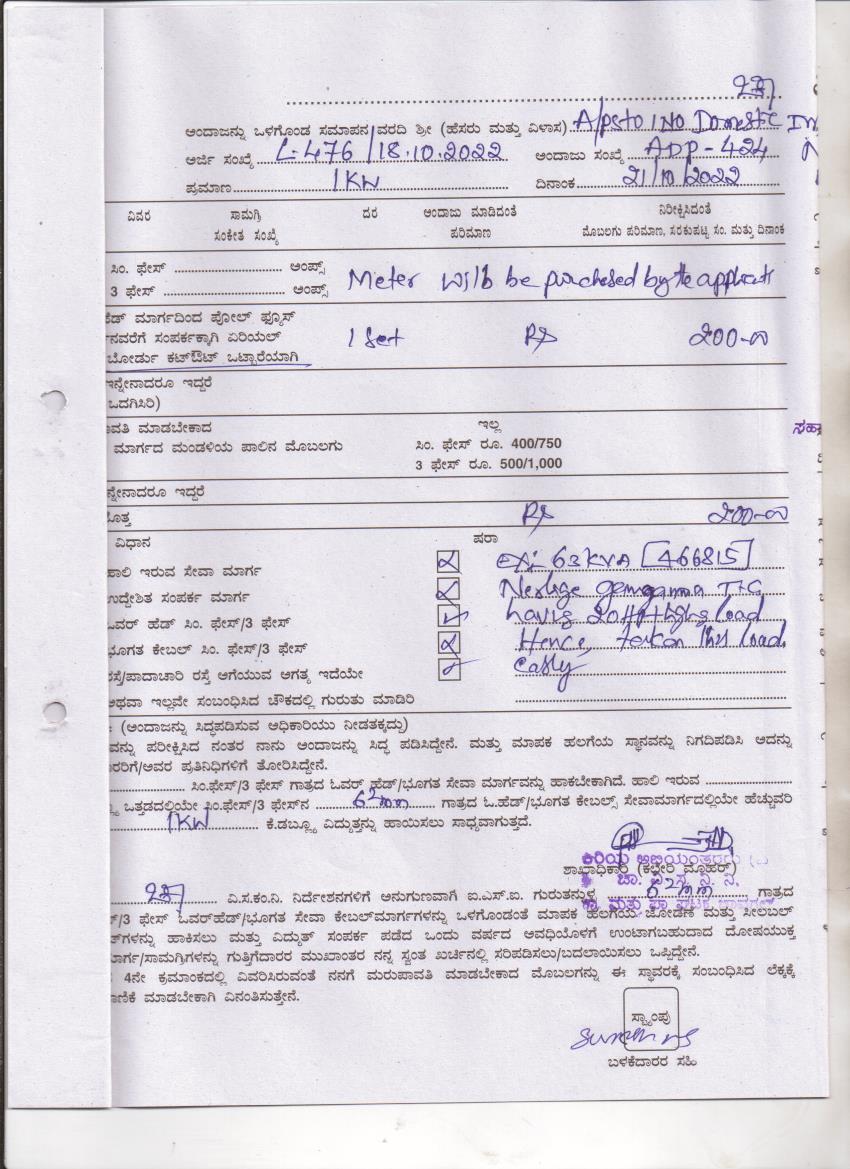 ಅಂದಾಜನ್ನು ಒಳಗೊಂಡ ಸಮಾಪನ ವರದಿ ಶ್ರೀ (ಹೆಸರು ಮತ್ತು ವಿಳಾಸ) A/p to 1 No Domestic
ಅರ್ಜಿ ಸಂಖ್ಯೆ L-476/18.10.2022 ಅಂದಾಜು ಸಂಖ್ಯೆ ADP-424
ಪ್ರಮಾಣ 1KW ದಿನಾಂಕ 21/10/2022
ವಿವರ ಸಾಮಗ್ರಿ ದರ ಅಂದಾಜು ಮಾಡಿದಂತೆ ನಿರೀಕ್ಷಿಸಿದಂತೆ
ಸಂಕೇತ ಸಂಖ್ಯೆ ಪರಿಮಾಣ ಮೊಬಲಗು ಪರಿಮಾಣ, ಸರಕುಪಟ್ಟಿ ಸಂ. ಮತ್ತು ದಿನಾಂಕ
ಸಿಂ. ಫೇಸ್ ಆಂಪ್ಸ್
3 ಫೇಸ್ ಆಂಪ್ಸ್ Meter will be purchased by the applicant
ಹೆಡ್ ಮಾರ್ಗದಿಂದ ಪೋಲ್ ಫ್ಯೂಸ್
ನವರೆಗೆ ಸಂಪರ್ಕಕ್ಕಾಗಿ ಏರಿಯಲ್ 1 Set Rs 200-00
ಬೋರ್ಡು ಕಟ್‌ಔಟ್ ಒಟ್ಟಾರೆಯಾಗಿ
ಇನ್ನೇನಾದರೂ ಇದ್ದರೆ
ಒದಗಿಸಿರಿ)
ಪಾವತಿ ಮಾಡಬೇಕಾದ ಇಲ್ಲ
ಮಾರ್ಗದ ಮಂಡಳಿಯ ಪಾಲಿನ ಮೊಬಲಗು ಸಿಂ. ಫೇಸ್ ರೂ. 400/750
3 ಫೇಸ್ ರೂ. 500/1,000
ನ್ನೇನಾದರೂ ಇದ್ದರೆ
ಮೊತ್ತ Rs 200-00
ವಿಧಾನ ಷರಾ
ಹಾಲಿ ಇರುವ ಸೇವಾ ಮಾರ್ಗ 63 KVA [466815]
ಉದ್ದೇಶಿತ ಸಂಪರ್ಕ ಮಾರ್ಗ
ಓವರ್ ಹೆಡ್ ಸಿಂ. ಫೇಸ್/3 ಫೇಸ್ load
ಭೂಗತ ಕೇಬಲ್ ಸಿಂ. ಫೇಸ್/3 ಫೇಸ್ Hence, this load
ರಸ್ತೆ/ಪಾದಾಚಾರಿ ರಸ್ತೆ ಅಗೆಯುವ ಅಗತ್ಯ ಇದೆಯೇ
ಅಥವಾ ಇಲ್ಲವೇ ಸಂಬಂಧಿಸಿದ ಚೌಕದಲ್ಲಿ ಗುರುತು ಮಾಡಿರಿ
: (ಅಂದಾಜನ್ನು ಸಿದ್ಧಪಡಿಸುವ ಅಧಿಕಾರಿಯು ನೀಡತಕ್ಕದ್ದು)
ವನ್ನು ಪರೀಕ್ಷಿಸಿದ ನಂತರ ನಾನು ಅಂದಾಜನ್ನು ಸಿದ್ಧ ಪಡಿಸಿದ್ದೇನೆ. ಮತ್ತು ಮಾಪಕ ಹಲಗೆಯ ಸ್ಥಾನವನ್ನು ನಿಗದಿಪಡಿಸಿ ಅದನ್ನು
ರರಿಗೆ/ಅವರ ಪ್ರತಿನಿಧಿಗಳಿಗೆ ತೋರಿಸಿದ್ದೇನೆ.
ಸಿಂ.ಫೇಸ್/3 ಫೇಸ್ ಗಾತ್ರದ ಓವರ್ ಹೆಡ್/ಭೂಗತ ಸೇವಾ ಮಾರ್ಗವನ್ನು ಹಾಕಬೇಕಾಗಿದೆ. ಹಾಲಿ ಇರುವ
ಒತ್ತಡದಲ್ಲಿಯೇ ಸಿಂ.ಫೇಸ್/3 ಫೇಸ್‌ನ 6²mm ಗಾತ್ರದ ಓ.ಹೆಡ್/ಭೂಗತ ಕೇಬಲ್ಸ್ ಸೇವಾಮಾರ್ಗದಲ್ಲಿಯೇ ಹೆಚ್ಚುವರಿ
1KW ಕೆ.ಡಬ್ಲ್ಯೂ ವಿದ್ಯುತ್ತನ್ನು ಹಾಯಿಸಲು ಸಾಧ್ಯವಾಗುತ್ತದೆ.
ಶಾಖಾಧಿಕಾರಿ (ಕಛೇರಿ ಮೊಹರ್)
ವಿ.ಸ.ಕಂ.ನಿ. ನಿರ್ದೇಶನಗಳಿಗೆ ಅನುಗುಣವಾಗಿ ಐ.ಎಸ್.ಐ. ಗುರುತನ್ನುಳ್ಳ 6²mm ಗಾತ್ರದ
/3 ಫೇಸ್ ಓವರ್‌ಹೆಡ್/ಭೂಗತ ಸೇವಾ ಕೇಬಲ್‌ಮಾರ್ಗಗಳನ್ನು ಒಳಗೊಂಡಂತೆ ಮಾಪಕ ಹಲಗೆಯ ಜೋಡಣೆ ಮತ್ತು ಸೀಲಬಲ್
ಗಳನ್ನು ಹಾಕಿಸಲು ಮತ್ತು ವಿದ್ಯುತ್ ಸಂಪರ್ಕ ಪಡೆದ ಒಂದು ವರ್ಷದ ಅವಧಿಯೊಳಗೆ ಉಂಟಾಗಬಹುದಾದ ದೋಷಯುಕ್ತ
ಮಾರ್ಗ/ಸಾಮಗ್ರಿಗಳನ್ನು ಗುತ್ತಿಗೆದಾರರ ಮುಖಾಂತರ ನನ್ನ ಸ್ವಂತ ಖರ್ಚಿನಲ್ಲಿ ಸರಿಪಡಿಸಲು/ಬದಲಾಯಿಸಲು ಒಪ್ಪಿದ್ದೇನೆ.
4ನೇ ಕ್ರಮಾಂಕದಲ್ಲಿ ವಿವರಿಸಿರುವಂತೆ ನನಗೆ ಮರುಪಾವತಿ ಮಾಡಬೇಕಾದ ಮೊಬಲಗನ್ನು ಈ ಸ್ಥಾವರಕ್ಕೆ ಸಂಬಂಧಿಸಿದ ಲೆಕ್ಕಕ್ಕೆ
ಣಿಕೆ ಮಾಡಬೇಕಾಗಿ ವಿನಂತಿಸುತ್ತೇನೆ.
ಸ್ಟ್ಯಾಂಪು
ಬಳಕೆದಾರರ ಸಹಿ